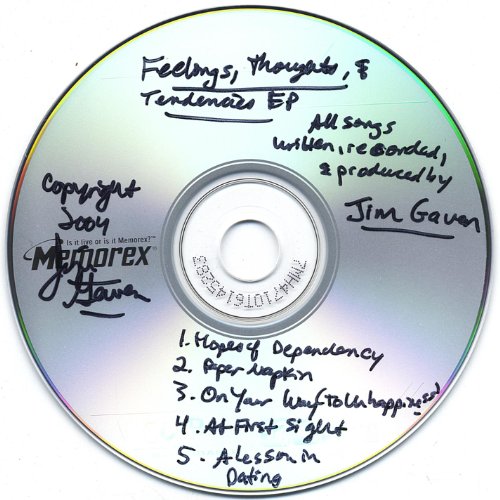 Feelings, Thoughts, &
Tendencies EP
All songs
written, recorded,
& produced by
Jim Gaven
Copyright
2004
Is it live or is it Memorex?™
Memorex
Gaven
7MH4710T6145283
1. Hopes of Dependency
2. Paper Napkin
3. On Your Way To Unhappiness
4. At First Sight
5. A Lesson in
Dating